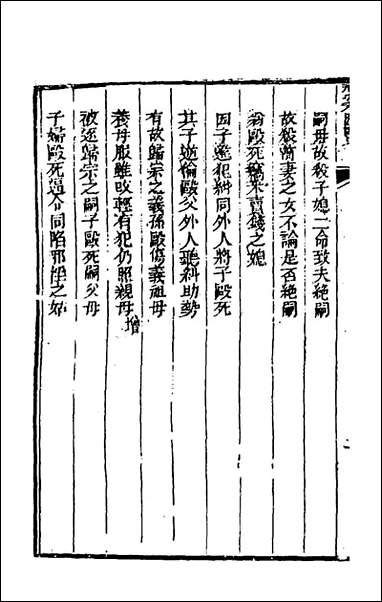 嗣母故殺子媳二命致夫絶嗣
故殺前妻之女不論是否絶嗣
翁毆死竊米賣錢之媳
因子逞犯糾同外人將子毆死
其子逆倫毆父外人聽糾助勢
有故歸宗之義孫毆傷義祖母
養母服雖改輕有犯仍照親母增
被逐歸宗之嗣子毆死嗣父母
子婦毆死逼令同陷邪淫之姑